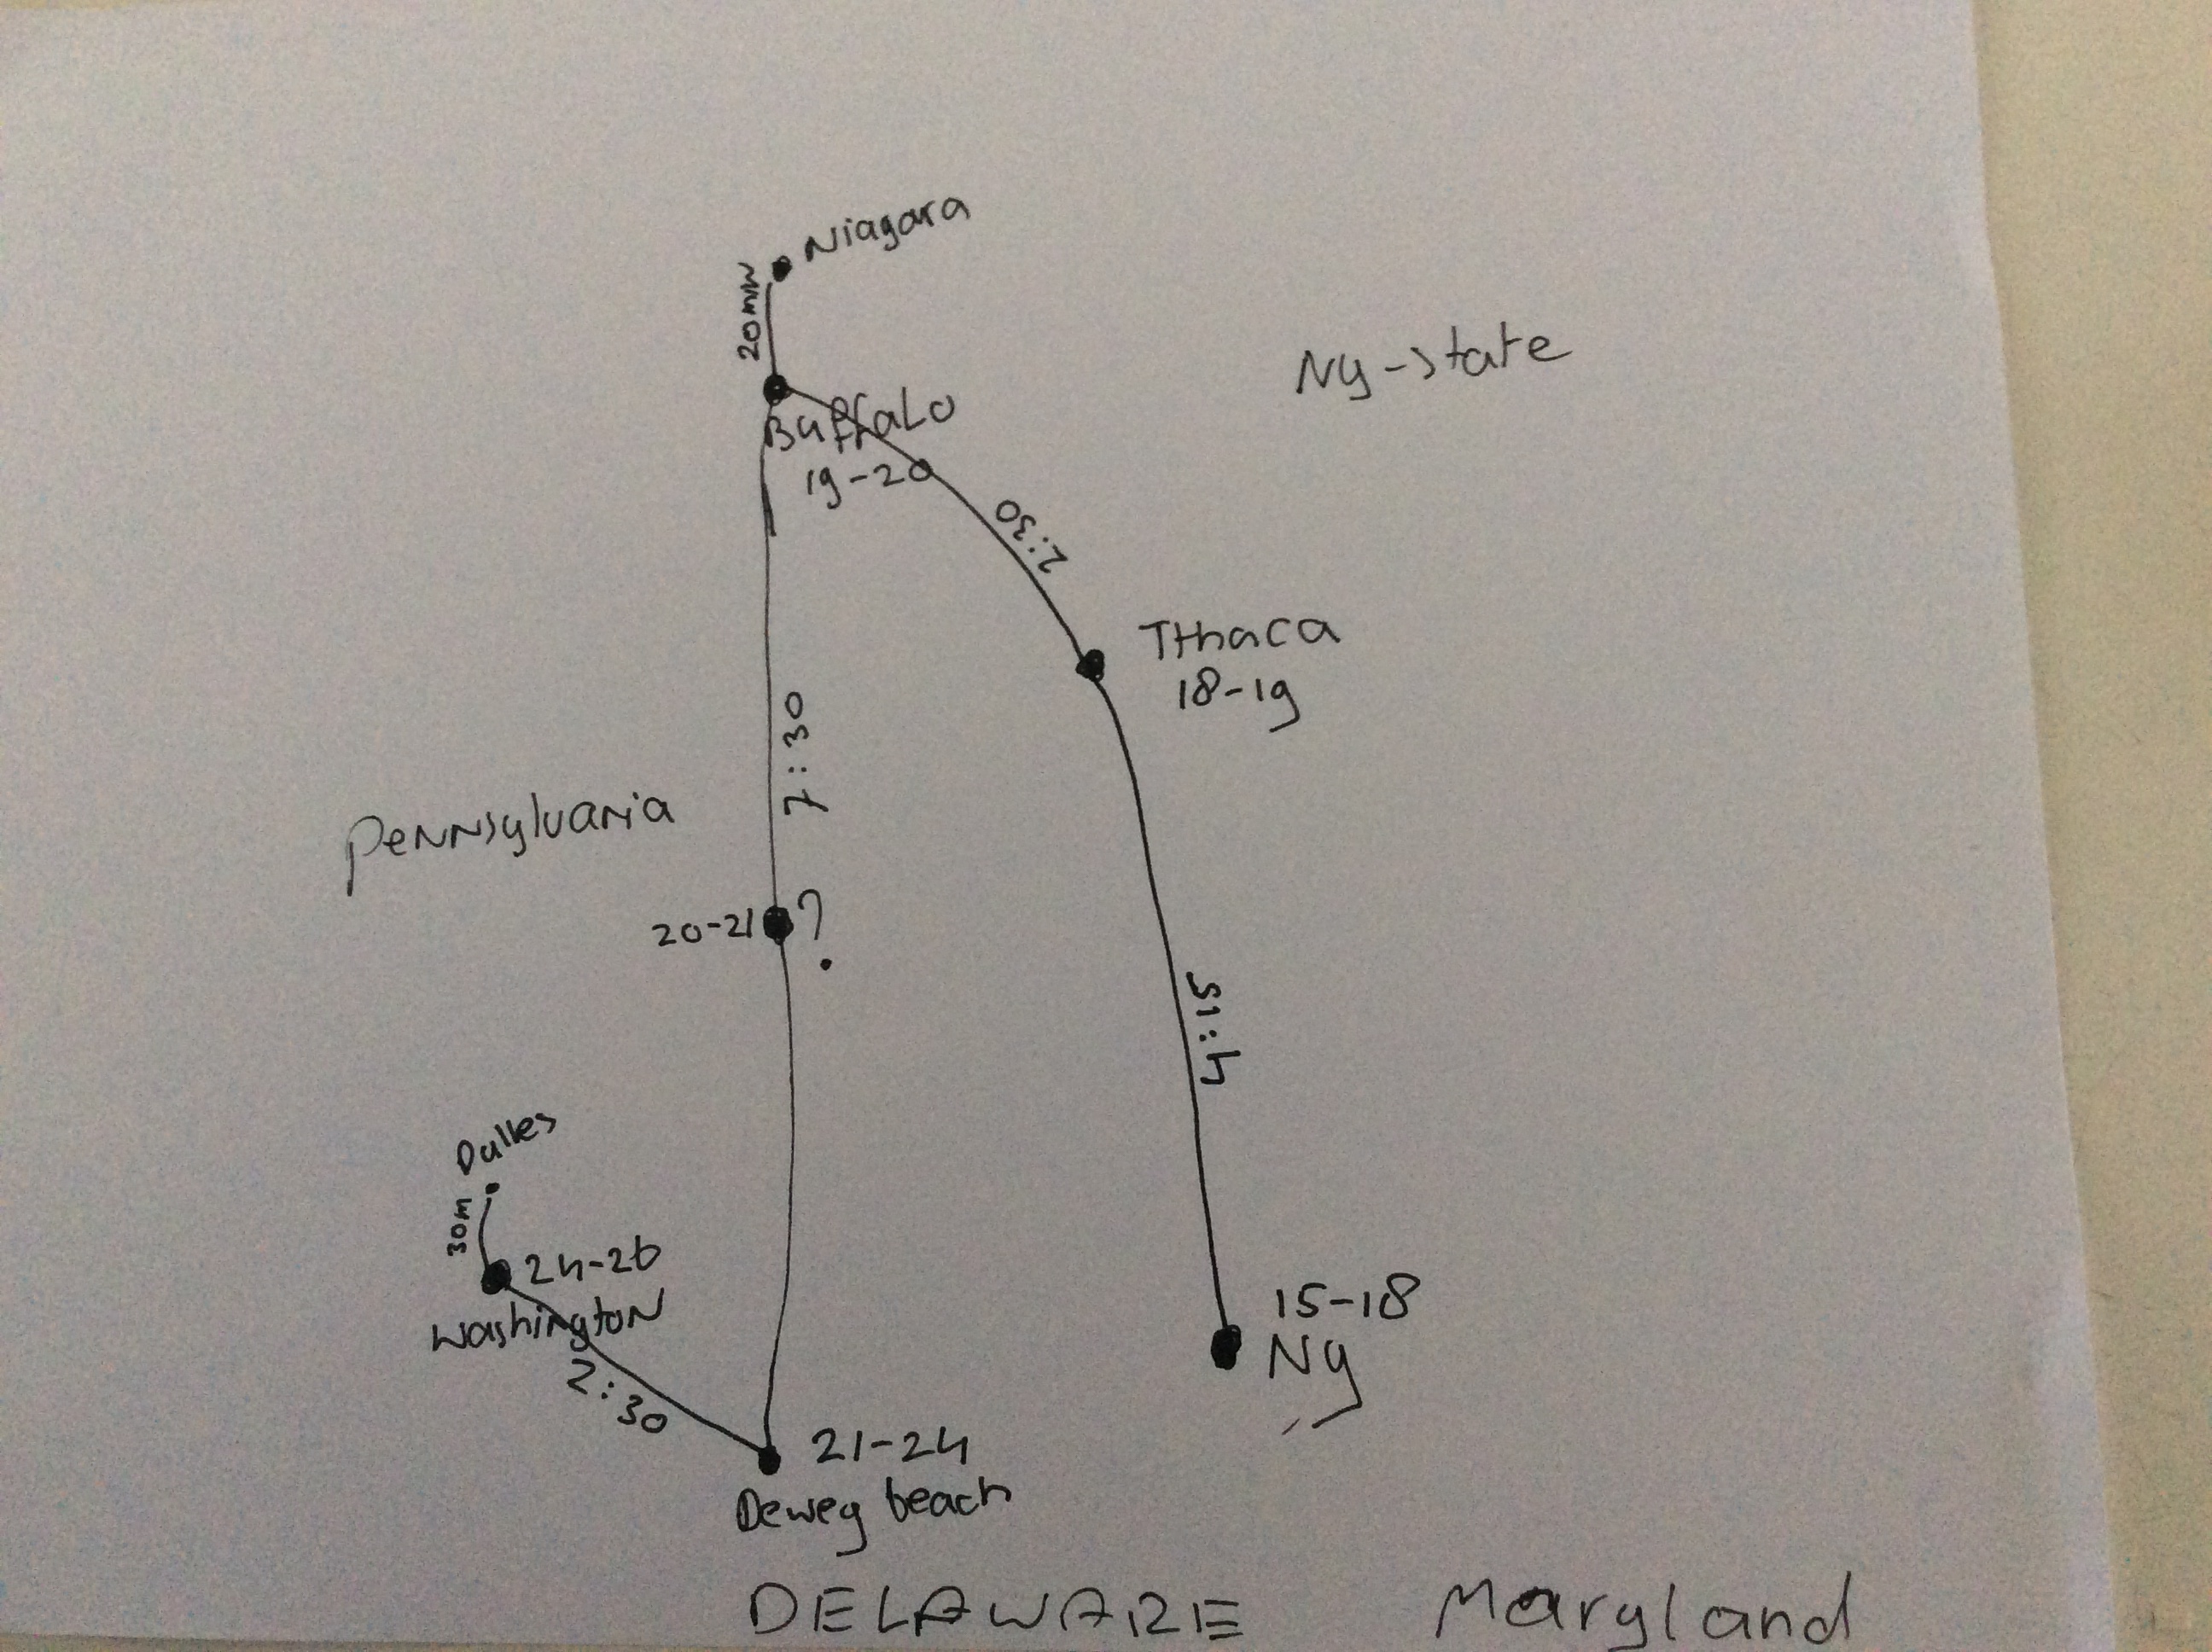 Niagara
20min
Ny-state
Buffalo
19-20
2:30
Ithaca
18-19
7:30
Pennsylvania
20-21 ?
4:15
Dulles
30m
24-26
Washington
2:30
15-18
Ny
21-24
Dewey beach
DELAWARE
Maryland